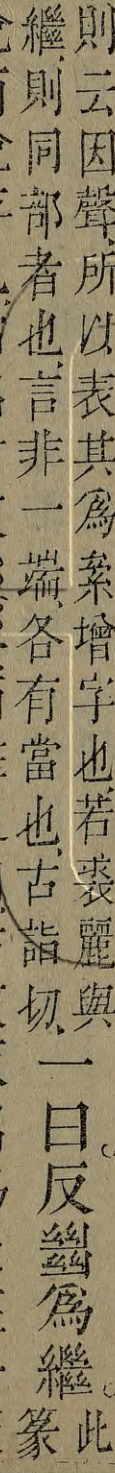 則云因聲、所以表其爲絫增字也、若裘麗與
繼、則同部者也、言非一端、各有當也、古詣切、
一曰。反𢇍爲繼。
此
篆